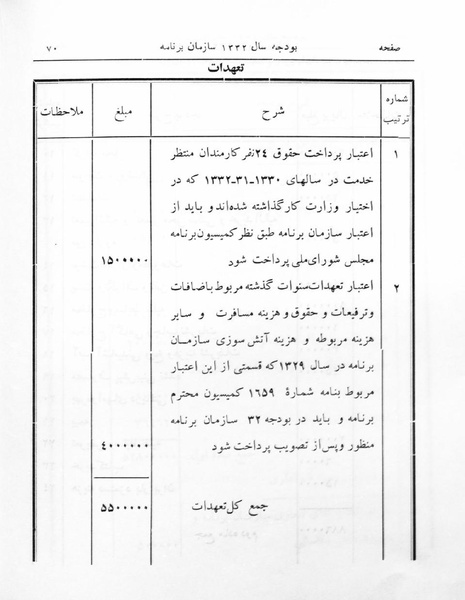 صفحه بودجه سال ۱۳۳۲ سازمان برنامه ۷۰
تعهدات
شماره ترتیب شرح مبلغ ملاحظات
۱ اعتبار پرداخت حقوق ۲۴نفر کارمندان منتظر
خدمت در سالهای ۱۳۳۰-۳۱-۱۳۳۲ که در
اختیار وزارت کار گذاشته شده‌اند و باید از
اعتبار سازمان برنامه طبق نظر کمیسیون برنامه
مجلس شورای ملی پرداخت شود ۱۵۰۰۰۰۰
۲ اعتبار تعهدات سنوات گذشته مربوط باضافات
وترفیعات و حقوق و هزینه مسافرت و سایر
هزینه مربوطه و هزینه آتش سوزی سازمان
برنامه در سال ۱۳۲۹ که قسمتی از این اعتبار
مربوط بنامه شمارهٔ ۱۶۵۹ کمیسیون محترم
برنامه و باید در بودجه ۳۲ سازمان برنامه
منظور وپس از تصویب پرداخت شود ۴۰۰۰۰۰۰
جمع کل تعهدات ۵۵۰۰۰۰۰